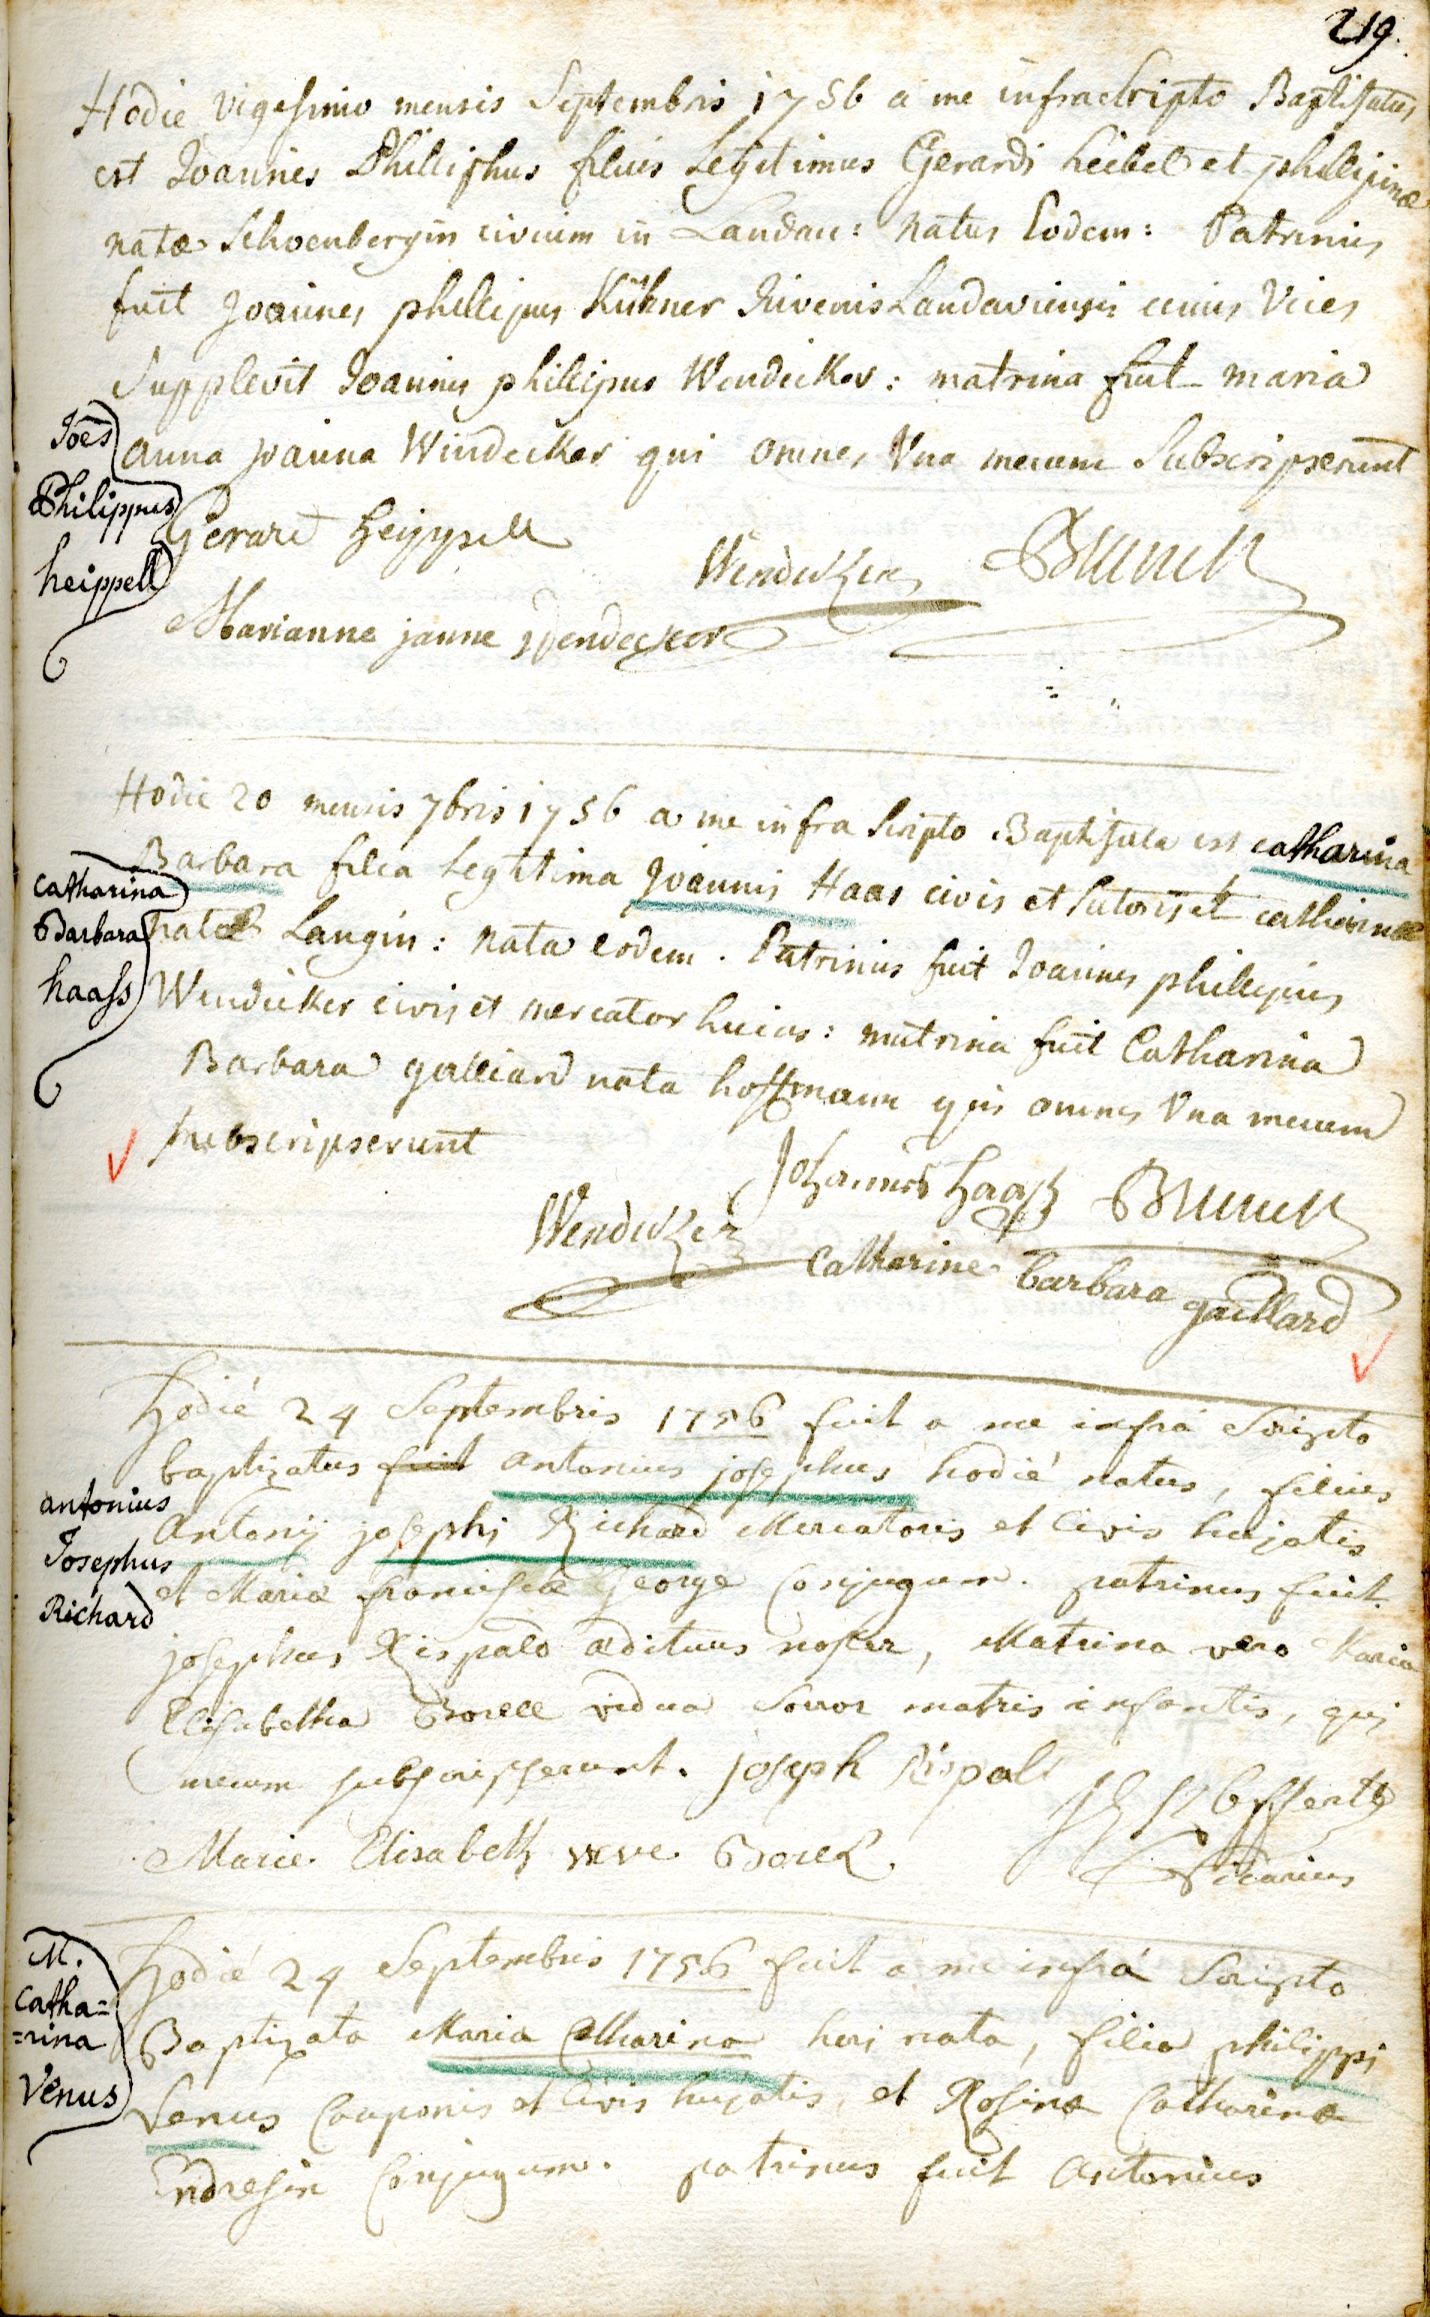 219.
Hodie vigesimo mensis Septembris 1756 a me infrascripto Baptisatus
est Joannes Philliphus filius Legitimus Gerardi heibel et phillipinæ
natæ Schoenbergin civium in Landau: natus Eodem: Patrinus
fuit Joannes phillipus Kühner Juvenis Landaviensis cuius Vices
Supplevit Joannes phillipus Wendecker: matrina fuit maria
anna joanna Windecker qui omnes Una mecum Subscripserunt
Joes
Philippus
heippell
Gerard heippell
Wendecker
Brunck
Marianne janne Wendecker
Hodie 20 mensis 7bris 1756 a me infra Scripto Baptisata est catharina
Barbara filia legitima Joannis Haas civis et Sutoris et catharinæ
natæ Langin: nata eodem. Patrinus fuit Joannes phillipus
Wendecker civis et mercator huias: matrina fuit Catharina
Barbara galliard nata hoffmann qui omnes Una mecum
subscripserunt
catharina
Barbara
haass
Johannes Haass
Brunck
Wendecker
Catharine barbara gaillard
Hodié 24 Septembris 1756 fuit a me infrá Scripto
baptizatus fuit antonius josephus hodié natus, filius
Antonij josephi Richard Mercatoris et Civis hujatis
et Mariæ franciscæ George Conjugum. patrinus fuit
josephus Rispald ædituus noster, Matrina vero Maria
Elisabetha Borell vidua Soror matris infantis, qui
mecum subscripserunt. joseph Rispal
Marie Elisabeth veve Borell
Vicarius
antonius
Josephus
Richard
Hodié 24 Septembris 1756 fuit a me infrá Scripto
Baptizata Maria Catharina heri nata, filia philippi
Venus Cauponis et Civis hujatis, et Rosinæ Catharinæ
Endresin Conjugum. patrinus fuit Antonius
M.
catha=
=rina
Venus